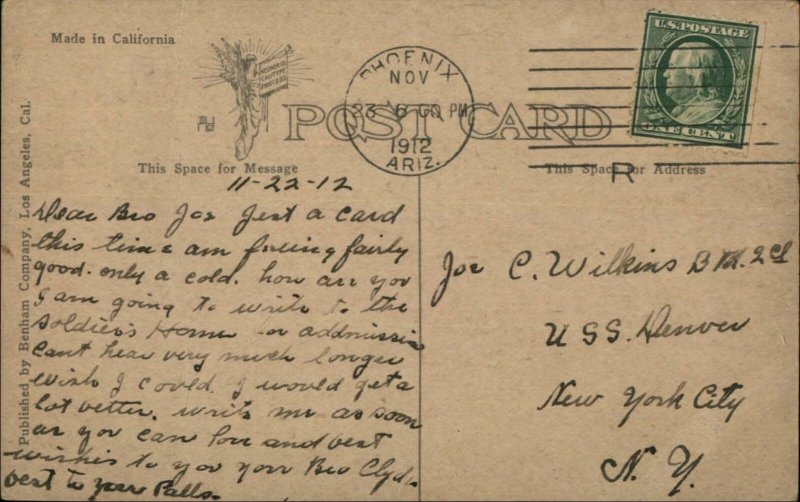 Made in California
PHOENIX
NOV
23 6 00 PM
1912
ARIZ.
U.S. POSTAGE
ONE CENT
POST CARD
This Space for Message
This Space for Address
R
Published by Benham Company, Los Angeles, Cal.
11-22-12
Dear Bro Joe Just a card
this time am feeling fairly
good. only a cold. how are you
I am going to write to the
Soldier's Home for addmission
cant hear very much longer
wish I could. I would get a
lot better. write me as soon
as you can love and best
wishes to you your Bro Clyde
best to your Palls.
Joe C. Wilkins B M. 2cl
U S S. Denver
New York City
N. Y.